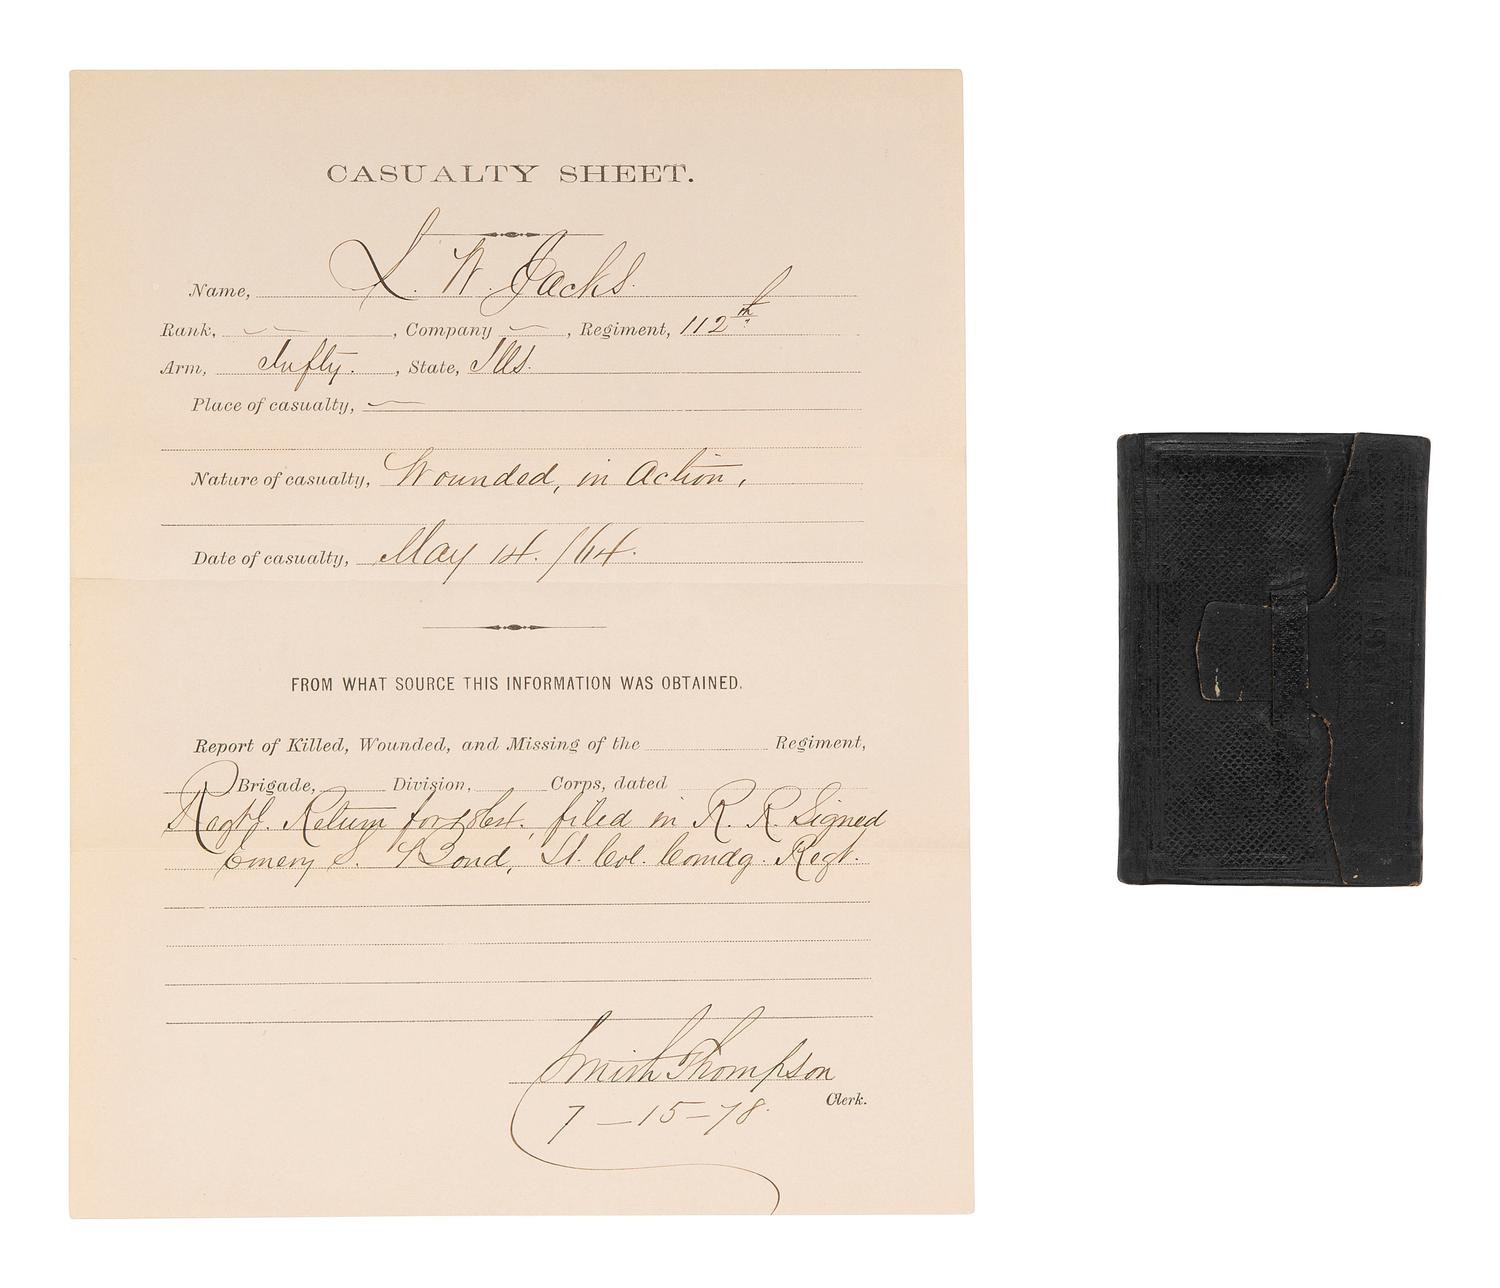 CASUALTY SHEET.
Name, L. W. Jacks.
Rank, — , Company — , Regiment, 112th
Arm, Infty. , State, Ills.
Place of casualty, —
Nature of casualty, Wounded, in Action,
Date of casualty, May 14. /64.
FROM WHAT SOURCE THIS INFORMATION WAS OBTAINED.
Report of Killed, Wounded, and Missing of the Regiment,
Brigade, Division, Corps, dated
Regtl. Return for filed in R. R. Signed
Emery S. Bond, Lt. Col. Comdg. Regt.
Smith Thompson
Clerk.
7-15-78.